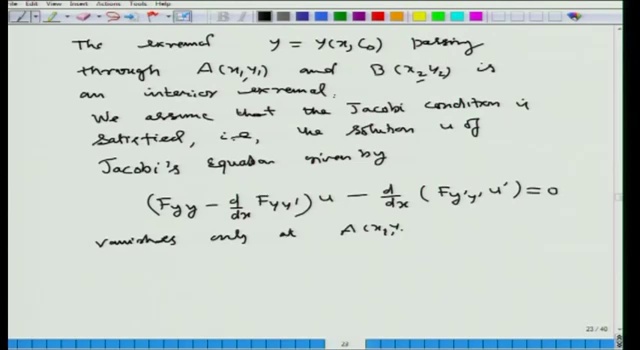 File Edit View Insert Actions Tools Help
The extremal y = y(x, C₀) passing
through A(x₁, y₁) and B(x₂, y₂) is
an interior extremal.
We assume that the Jacobi condition is
satisfied, i.e., the solution u of
Jacobi's Equation given by
(Fyy - d/dx Fyy') u - d/dx (Fy'y' u') = 0
vanishes only at A(x₁, y.
23 / 40
23